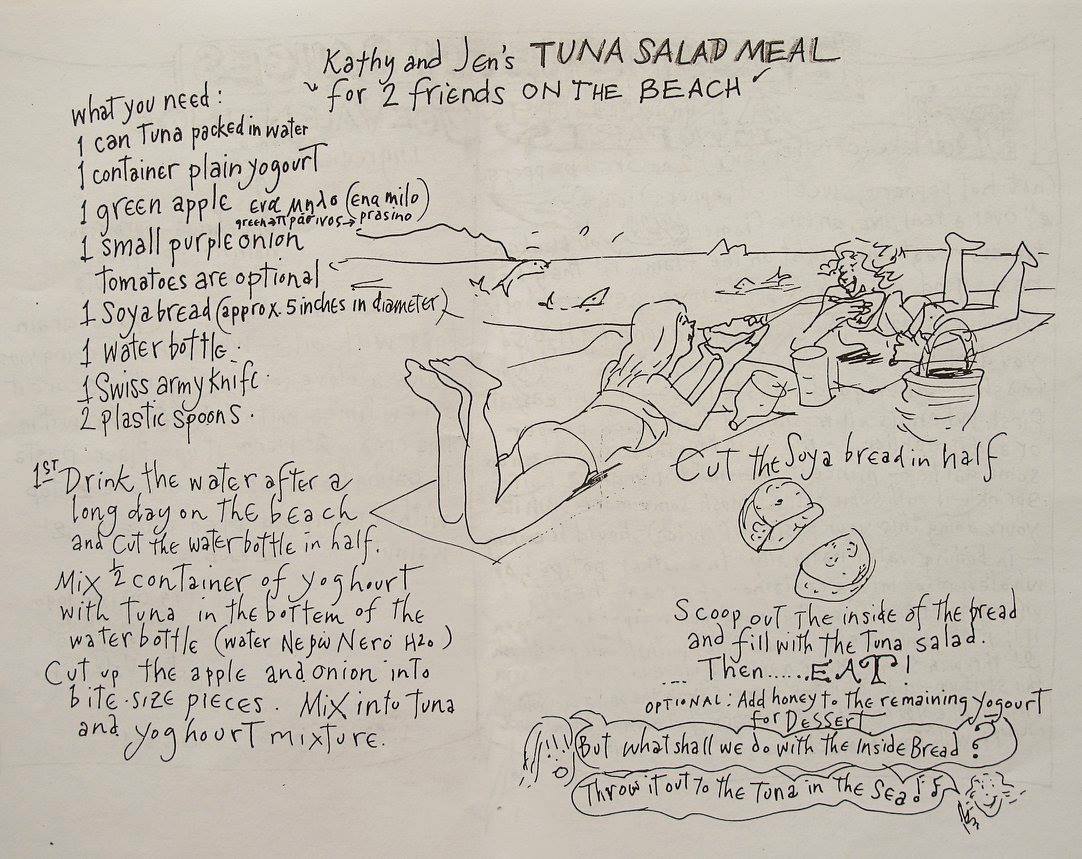 Kathy and Jen's TUNA SALAD MEAL
for 2 friends ON THE BEACH
what you need:
1 can Tuna packed in water
1 container plain yogourt
1 green apple ενα μηλο (ena milo)
green → πράσινος → prasino
1 small purple onion
tomatoes are optional
1 Soya bread (approx. 5 inches in diameter)
1 water bottle.
1 Swiss army knife.
2 plastic spoons.
1ST Drink the water after a
long day on the beach
and cut the water bottle in half.
Mix 1/2 container of yoghourt
with tuna in the bottem of the
water bottle (water Νερό Nero H2O)
Cut up the apple and onion into
bite-size pieces. Mix into tuna
and yoghourt mixture.
Cut the Soya bread in half
Scoop out the inside of the bread
and fill with the Tuna salad.
... Then......EAT!
OPTIONAL: Add honey to the remaining yogourt
for Dessert
But what shall we do with the inside Bread?
Throw it out to the Tuna in the Sea!!